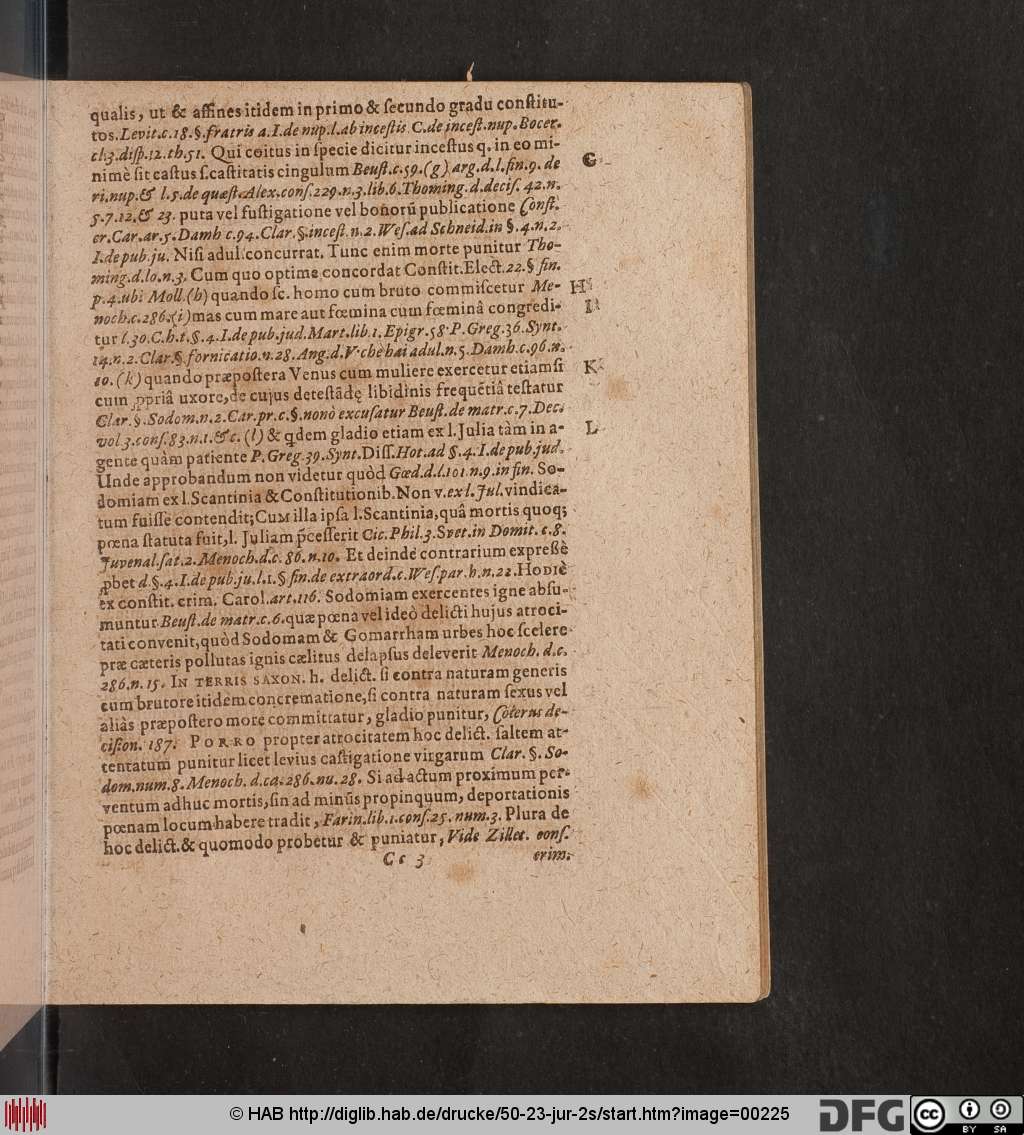 qualis, ut & affines itidem in primo & ſecundo gradu conſtitu-
tos. Levit. c. 18. §. fratris a. I. de nup. l. ab inceſtis C. de inceſt. nup. Bocer.
cl. 3. diſp. 12. th. 51. Qui coitus in ſpecie dicitur inceſtus q. in eo mi-
nimè ſit caſtus ſ. caſtitatis cingulum Beuſt. c. 59. (g) arg. d. l. fin. 9. de
ri. nup. & l. 5. de quæſt. Alex. conſ. 229. n. 3. lib. 6. Thoming. d. deciſ. 42. n.
5. 7. 12. & 23. puta vel fuſtigatione vel bonorū publicatione Conſt.
cr. Car. ar. 5. Damh c. 94. Clar. §. inceſt. n. 2. Weſ. ad Schneid. in §. 4. n. 2.
I. de pub. ju. Niſi adul. concurrat. Tunc enim morte punitur Tho-
ming. d. lo. n. 3. Cum quo optime concordat Conſtit. Elect. 22. § fin.
p. 4. ubi Moll. (h) quando ſc. homo cum bruto commiſcetur Me-
noch. c. 286. (i) mas cum mare aut fœmina cum fœminâ congredi-
tur l. 30. C. h. t. §. 4. I. de pub. jud. Mart. lib. 1. Epigr. 58. P. Greg. 36. Synt.
14. n. 2. Clar. §. fornicatio. n. 28. Ang. d. V. chè hai adul. n. 5. Damh. c. 96. n.
10. (k) quando præpoſtera Venus cum muliere exercetur etiamſi
cum ꝓpriâ uxore, de cujus deteſtādę libidinis frequētiâ teſtatur
Clar. §. Sodom. n. 2. Car. pr. c. §. nonò excuſatur Beuſt. de matr. c. 7. Dec.
vol. 3. conſ. 83. n. 1. &c. (l) & qdem gladio etiam ex l. Julia tàm in a-
gente quàm patiente P. Greg. 39. Synt. Diſſ. Hot. ad §. 4. I. de pub. jud.
Unde approbandum non videtur quòd Gœd. d. l. 101 n. 9. in fin. So-
domiam ex l. Scantinia & Conſtitutionib. Non v. ex l. Jul. vindica-
tum fuiſſe contendit; Cum illa ipſa l. Scantinia, quâ mortis quoq;
pœna ſtatuta fuit, l. Juliam p̃ceſſerit Cic. Phil. 3. Svet. in Domit. c. 8.
Juvenal. ſat. 2. Menoch. d. c. 86. n. 10. Et deinde contrarium expreßè
ꝓbet d. §. 4. I. de pub. ju. l. 1. § fin. de extraord. c. Weſ. par. h. n. 22. Hodiè
ex conſtit. crim. Carol. art. 116. Sodomiam exercentes igne abſu-
muntur Beuſt. de matr. c. 6. quæ pœna vel ideò delicti hujus atroci-
tati convenit, quòd Sodomam & Gomarrham urbes hoc ſcelere
præ cæteris pollutas ignis cælitus delapſus deleverit Menoch. d. c.
286. n. 15. In terris saxon. h. delict. ſi contra naturam generis
cum brutore itidem concrematione, ſi contra naturam ſexus vel
aliàs præpoſtero more committatur, gladio punitur, Coterus de-
ciſion. 187. Porro propter atrocitatem hoc delict. ſaltem at-
tentatum punitur licet levius caſtigatione virgarum Clar. §. So-
dom. num. 8. Menoch. d. ca. 286. nu. 28. Si ad actum proximum per-
ventum adhuc mortis, ſin ad minūs propinquum, deportationis
pœnam locum habere tradit, Farin. lib. 1. conſ. 25. num. 3. Plura de
hoc delict. & quomodo probetur & puniatur, Vide Zillet. conſ.
Cc 3 crim.
G
H
I
K
L
© HAB http://diglib.hab.de/drucke/50-23-jur-2s/start.htm?image=00225
DFG
cc BY SA